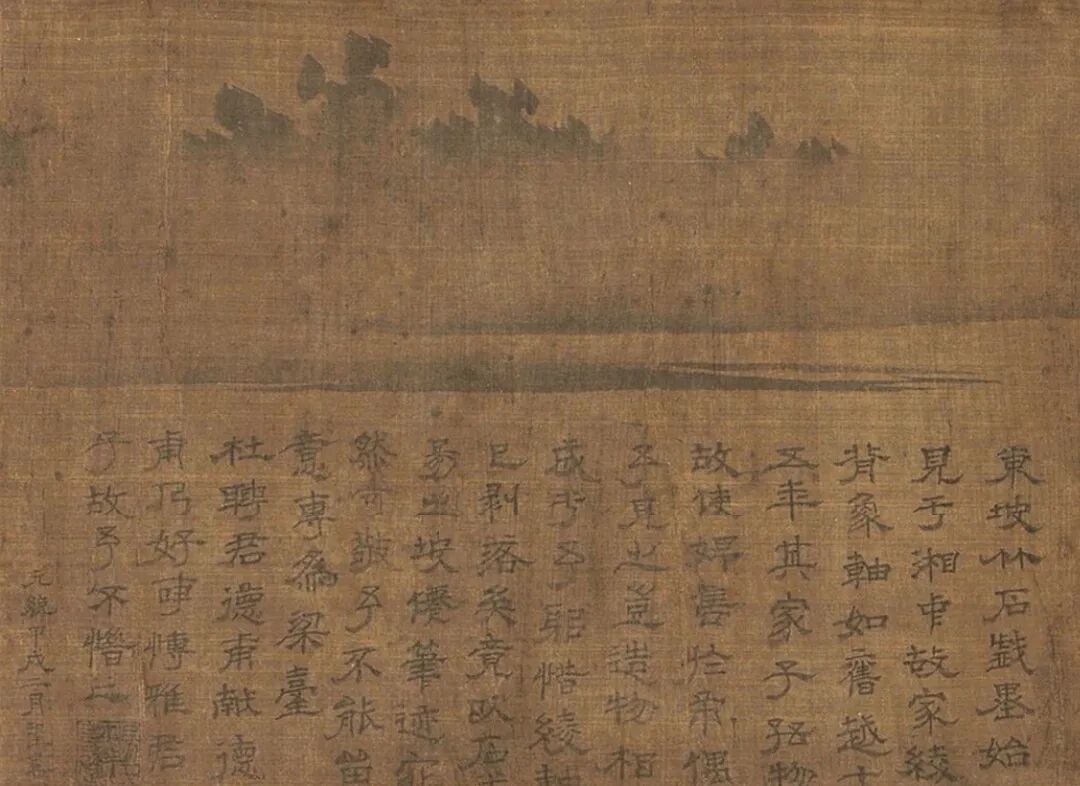 東坡竹石戲墨始
見于湘中故家綾
背象軸如舊越十
五年其家子孫物
故使婦善偶
見之豈造物相
成于予耶惜綾軸
已剥落矣竟以厚
易之坡僊筆迹宛
然可敬予不能留
意專爲梁臺
杜聘君德甫獻德
甫乃好事愽雅君
子故予不惜也
元統甲戌二月